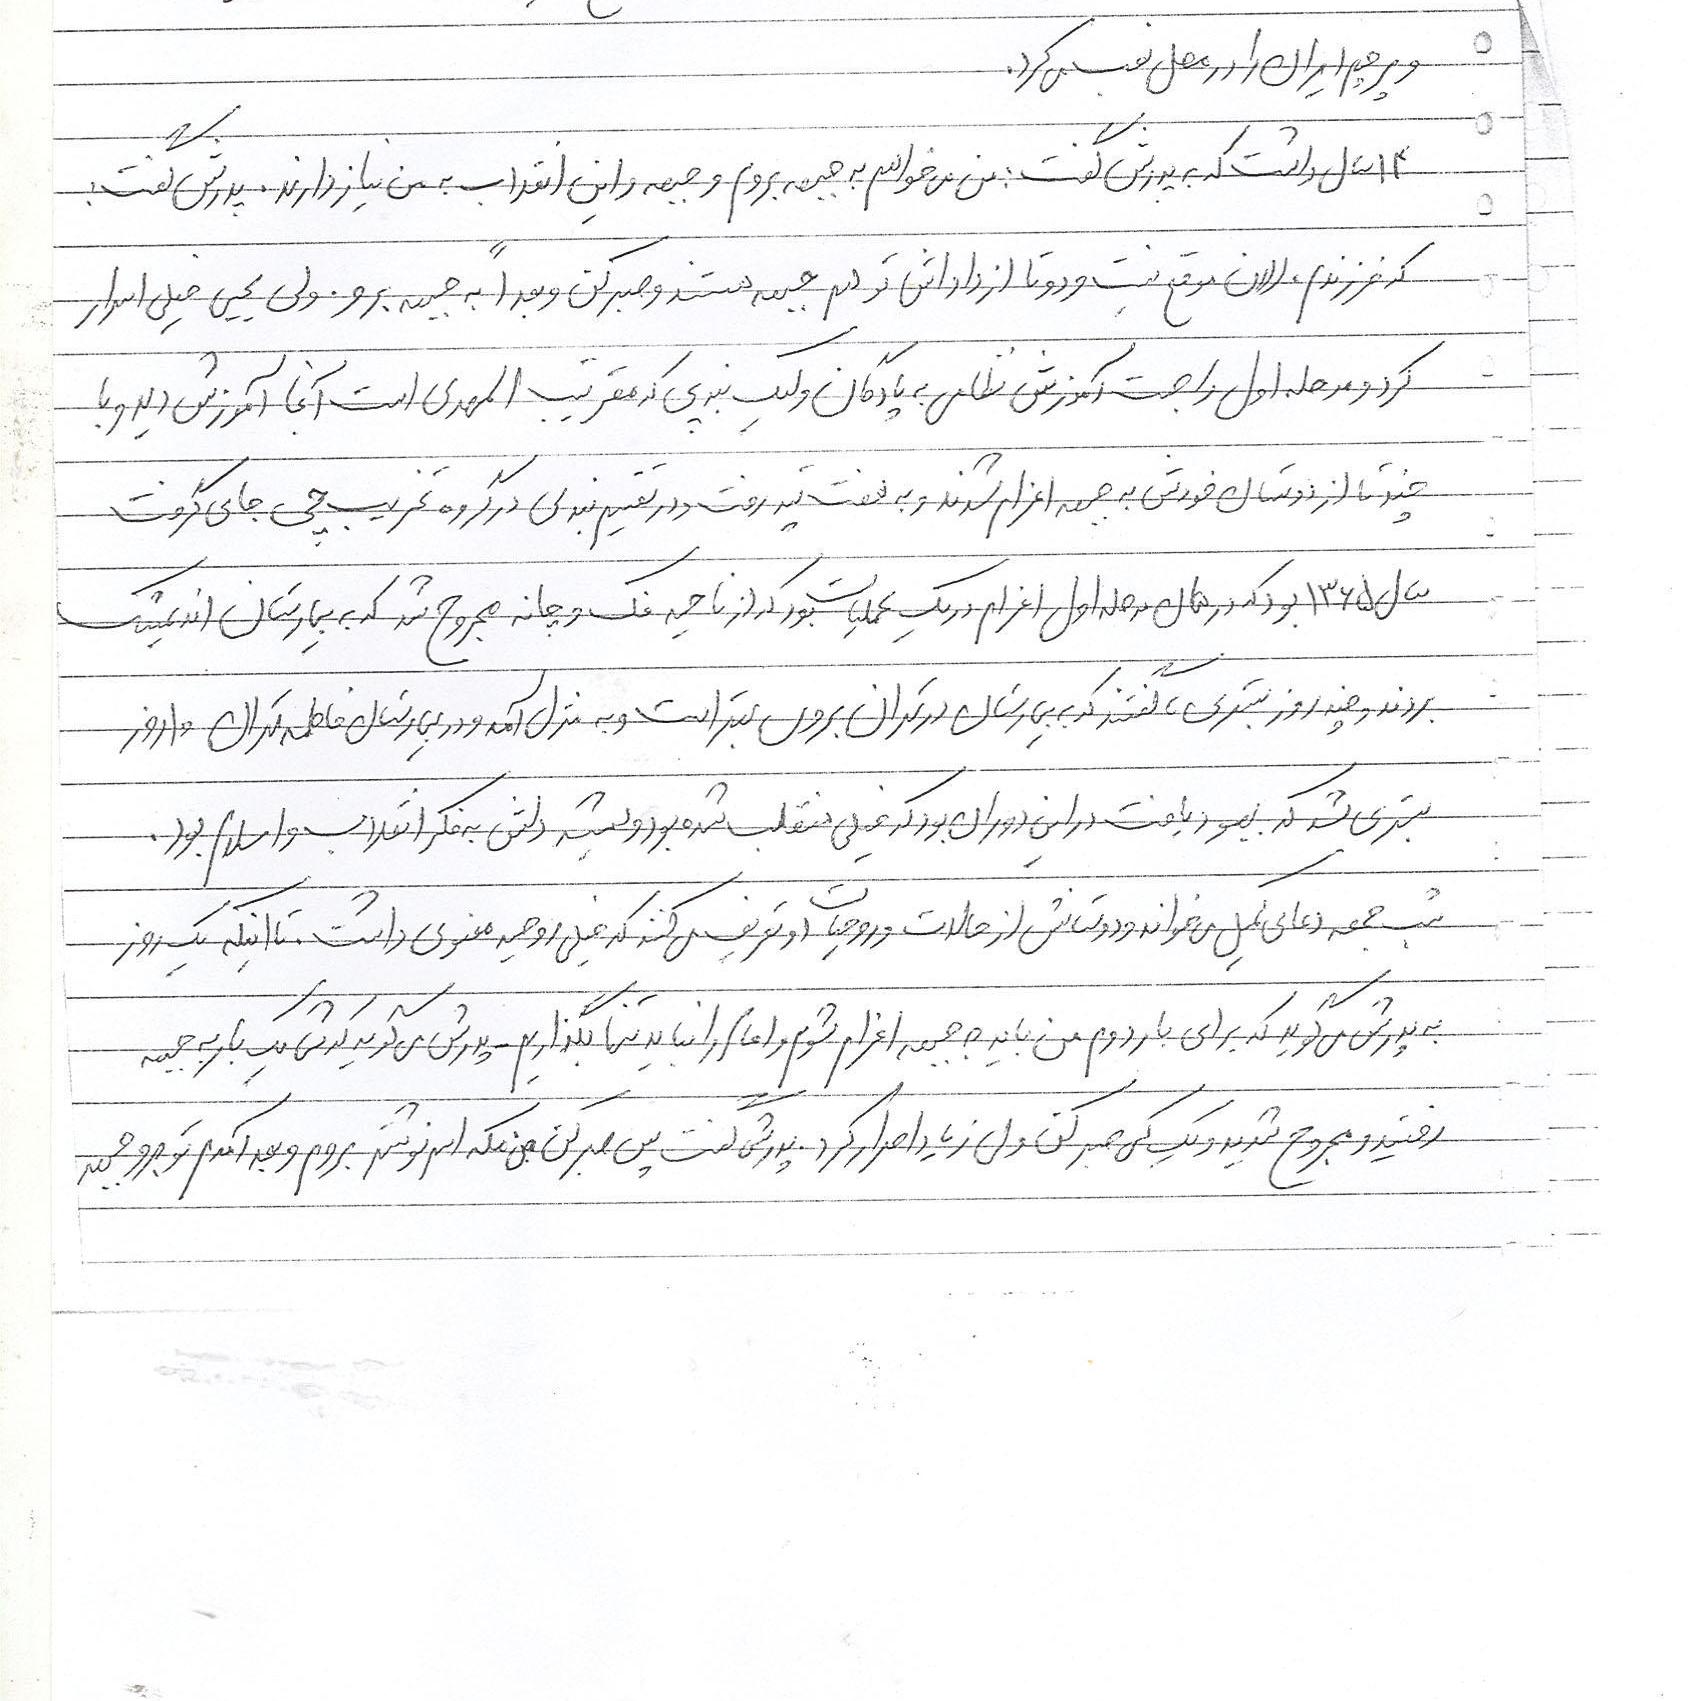 و پرچم ایران را در محل نصب می کرد.
۱۴ سال داشت که به پدرش گفت : من می خواهم به جبهه بروم و جبهه و این انقلاب به من نیاز دارند . پدرش گفت :
که فرزندم ، الان موقع نیست و دو تا از داداش تو هم جبهه هستند و صبر کن و بعداً به جبهه برو . ولی یحیی خیلی اصرار
کرد و مرحله اول را جهت آموزش نظامی به پادگان و لیک بندپی که مقر تیپ المهدی است آنجا آموزش دید و با
چند تا از دوستان خودش به جبهه اعزام شدند و به هفت تپه رفت و در تقسیم بندی در گروه تخریب چی جای گرفت
سال ۱۳۶۵ بود که در همان مرحله اول اعزام در یک عملیات بود که از ناحیه فک و چانه مجروح شد که به بیمارستان اندیمشک
بردند و چند روز بستری گفتند که به بیمارستان در تهران بروی بهتر است و به منزل آمد و در بیمارستان فاطمه تهران ۱۰ روز
بستری شد که بهبود یافت در این دوران بود که خیلی منقلب شده بود و همیشه ذهنش به فکر انقلاب و اسلام بود .
شب جمعه دعای کمیل می خواند و دوستانش از حالات و روحیات او تعریف می کنند که خیلی روحیه معنوی داشت . تا اینکه یک روز
به پدرش می گوید که برای بار دوم من باید به جبهه اعزام شوم و امام را نباید تنها بگذاریم - پدرش می گوید که شما یک بار به جبهه
رفتید و مجروح شدید و یک کمی صبر کن ولی زیاد اصرار کرد . پدرش گفت پس صبر کن من مکه اسم نوشتم بروم و بعد آمدم تو برو جبهه